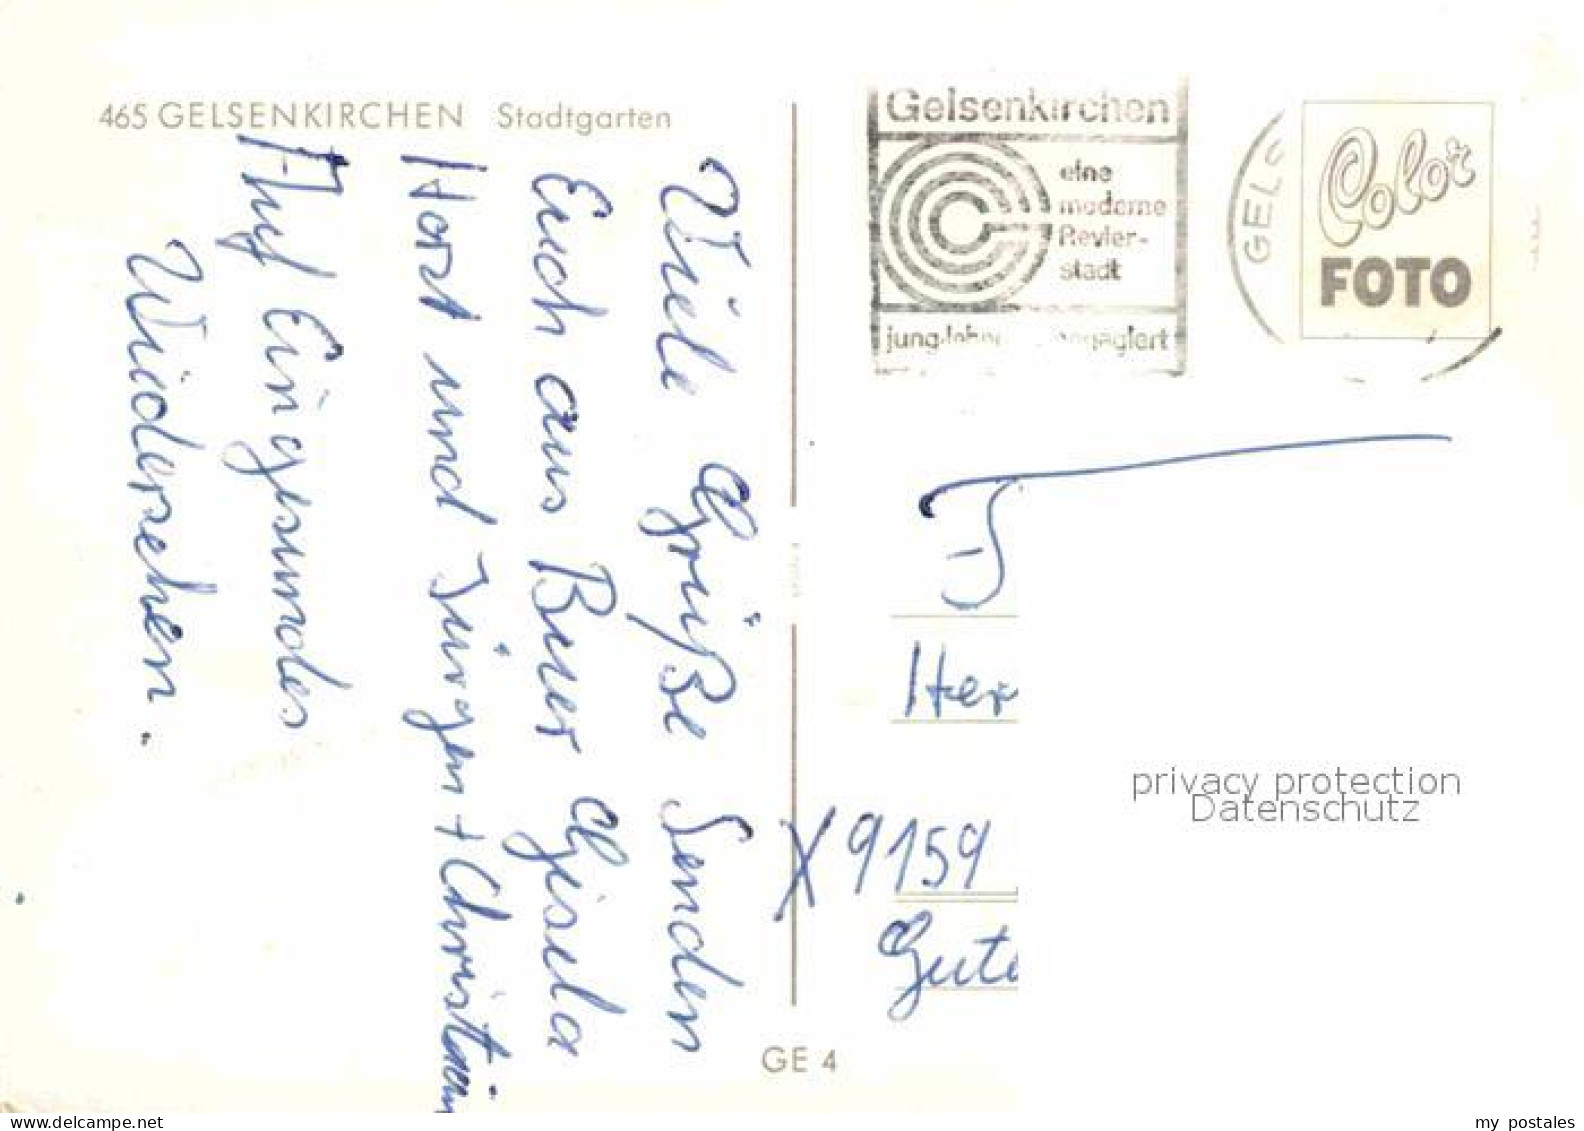 465 GELSENKIRCHEN Stadtgarten
Viele Grüße Senden
Euch aus Buer Gisela
Horst und Jürgen + Christian
Auf Ein gesundes
Wiedersehen.
Gelsenkirchen
eine
moderne
Revier-
stadt
jung
GELS
Color
FOTO
Her
X 9159
Gute
privacy protection
Datenschutz
GE 4
www.delcampe.net
my_postales